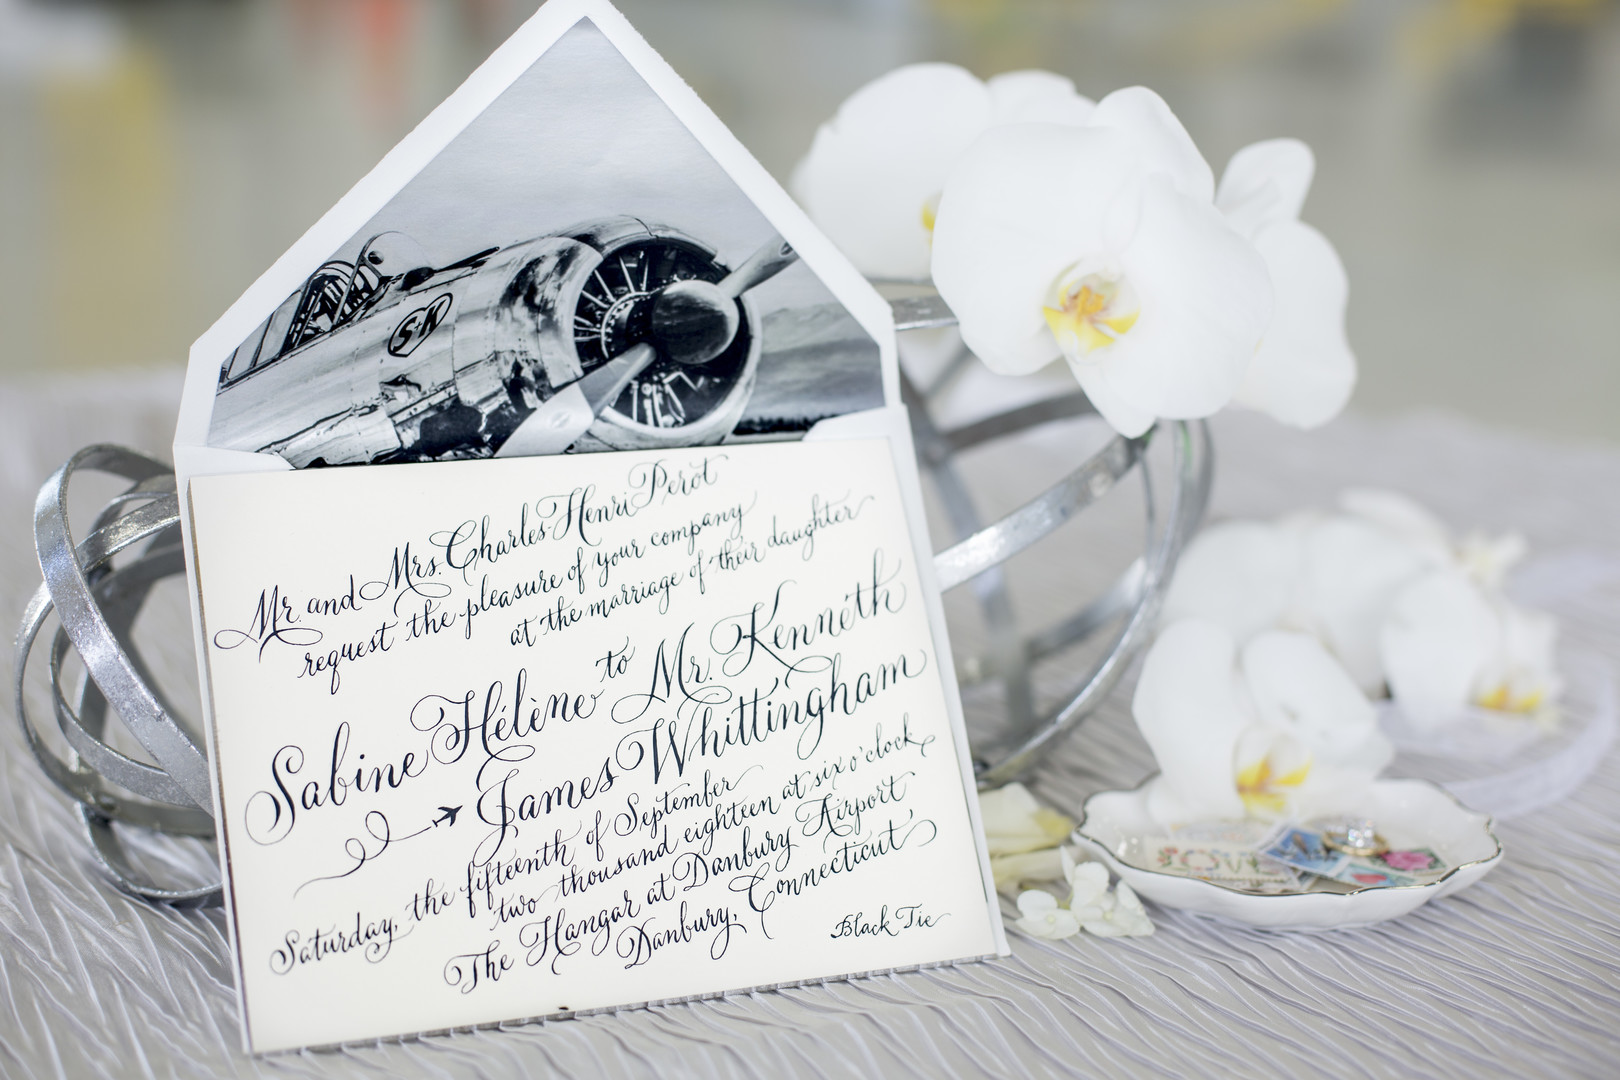 S·K
Mr. and Mrs. Charles-Henri Perot
request the pleasure of your company
at the marriage of their daughter
Sabine Hélène to Mr. Kenneth
James Whittingham
Saturday, the fifteenth of September
two thousand eighteen at six o'clock
The Hangar at Danbury Airport
Danbury, Connecticut
Black Tie
LOVE